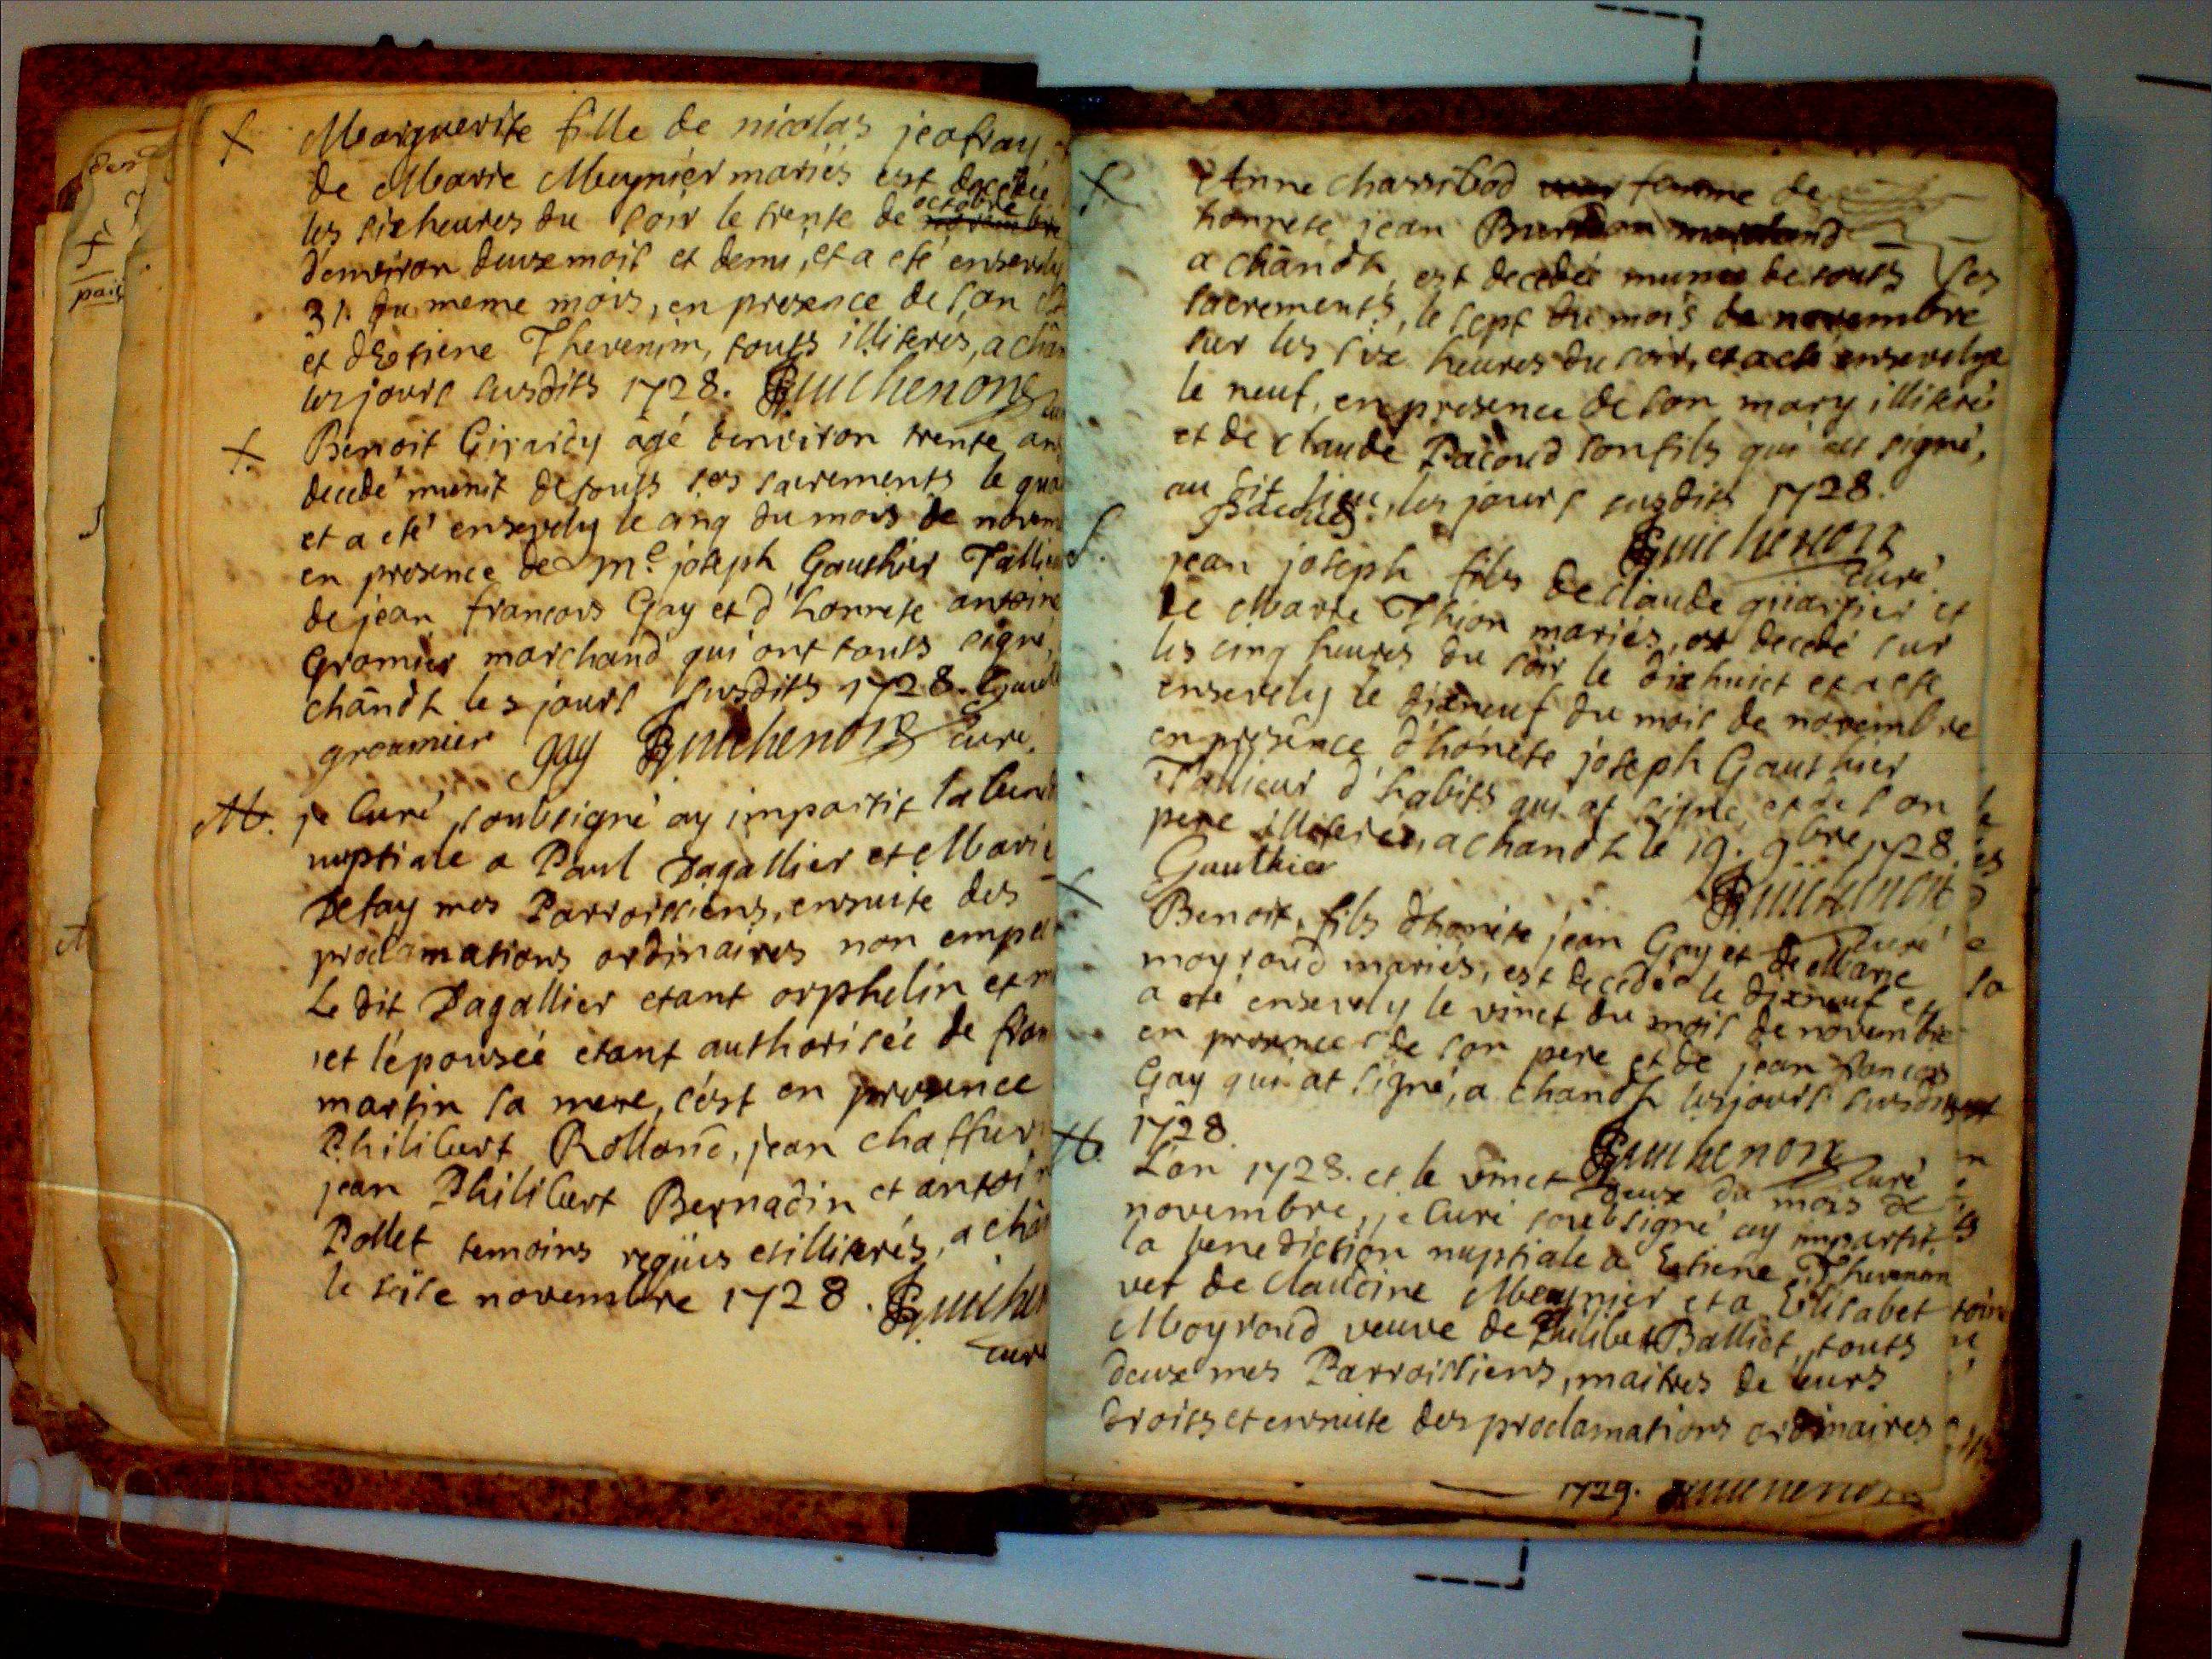 Marguerite fille de nicolas jeafray, et
de Marie Meynier mariés est decedée
les six heures du soir le trente de octobre novembre
denviron deux mois et demi, et a eté ensevely
31. du meme mois, en presence de son
et dEtiene Thevenin, touts illiterés, a chân
les jours susdits 1728. Guichenon
Benoit Girardy agé denviron trente ans
decedé munit de touts ses sacrements le qua
et a eté ensevely le cinq du mois de novem
en presence de Me. joseph Gauthier Tallieu
de jean francois Gay et d'honnete antoine
Gromier marchand qui ont touts signé,
chândt les jours susdits 1728.
groumier gay Guichenon curé.
M. je Curé, soubsigné ay impartit la bened
nuptiale a Paul Dagallier et Marie
Defay mes Parroissiens, ensuite des
proclamations ordinaires non empe
Le dit Dagallier etant orphelin et m
et l'épousée etant authorisée de fran
martin sa mere, c'est en presence
Philibert Rolland, jean chaffur
jean Philibert Bernadin et antoin
Pollet temoins reqüis et illiterés, a chân
le seise novembre 1728. Guichen
curé
Anne chassibod femme de
honnete jean
a chândt, est decedée munie de touts ses
sacrements, le sept du mois de novembre
sur les six heures du soir, et a eté ensevelye
le neuf, en presence de son mary illiteré
et de claude Pacoud son fils qui at signé,
au dit lieu, les jours susdits 1728.
pacoud Guichenon
curé.
jean joseph fils de claude
de Marie Thion mariés, est decedé sur
les cinq heures du soir le dixhuict et a eté
ensevely le dixneuf du mois de novembre
en presence d'honéte joseph Gauthier
Tallieur d'habits qui at signé, et de son
pere illiteré, a chandt le 19. 9bre 1728.
Gauthier Guichenon
curé
Benoit, fils dhonéte jean Gay et de Marie
moyroud mariés, est decedé le dixneuf et
a eté ensevely le vinct du mois de novembre
en presence de son pere et de jean francois
Gay qui at signé, a chandt les jours susdits
1728. Guichenon curé
L'an 1728. et le vinct deux du mois de
novembre, je Curé soubsigné ay impartit
la benediction nuptiale a Etiene Thevenon
vef de claudine Meynier et a Elisabet
Moyroud veuve de Philibert Balliet, touts
deux mes Parroissiens, maitres de leurs
droits et ensuite des proclamations ordinaires
1729. Guichenon